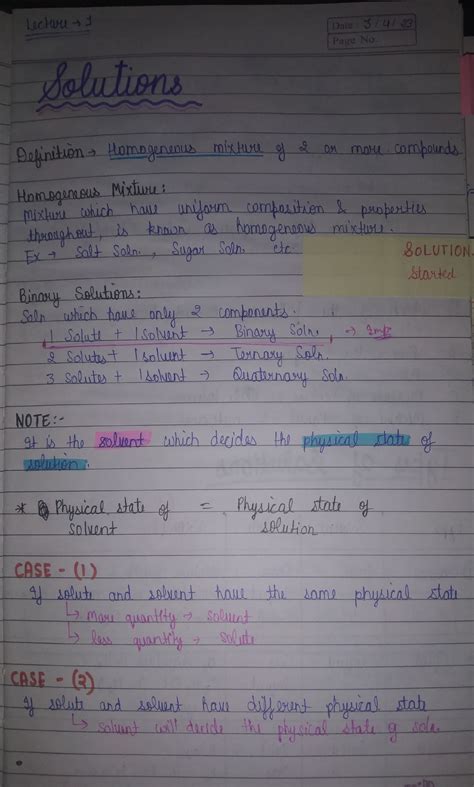 Lecture → 1
Date: 3/4/23
Page No.
Solutions
Definition → Homogeneous mixture of 2 or more compounds
Homogenous Mixture:
Mixture which have uniform composition & properties
throughout, is known as homogenous mixture.
Ex → Salt Soln., Sugar Soln. etc
SOLUTION
Started
Binary Solutions:
Soln which have only 2 components.
1 Solute + 1 Solvent → Binary Soln. → Imp
2 Solutes + 1 Solvent → Ternary Soln.
3 Solutes + 1 Solvent → Quaternary Soln.
NOTE:-
It is the solvent which decides the physical state of
solution.
* Physical state of = Physical state of
solvent solution
CASE - (1)
If solute and solvent have the same physical state
↳ more quantity → solvent
↳ less quantity → solute
CASE - (2)
If solute and solvent have different physical state
↳ solvent will decide the physical state of soln.